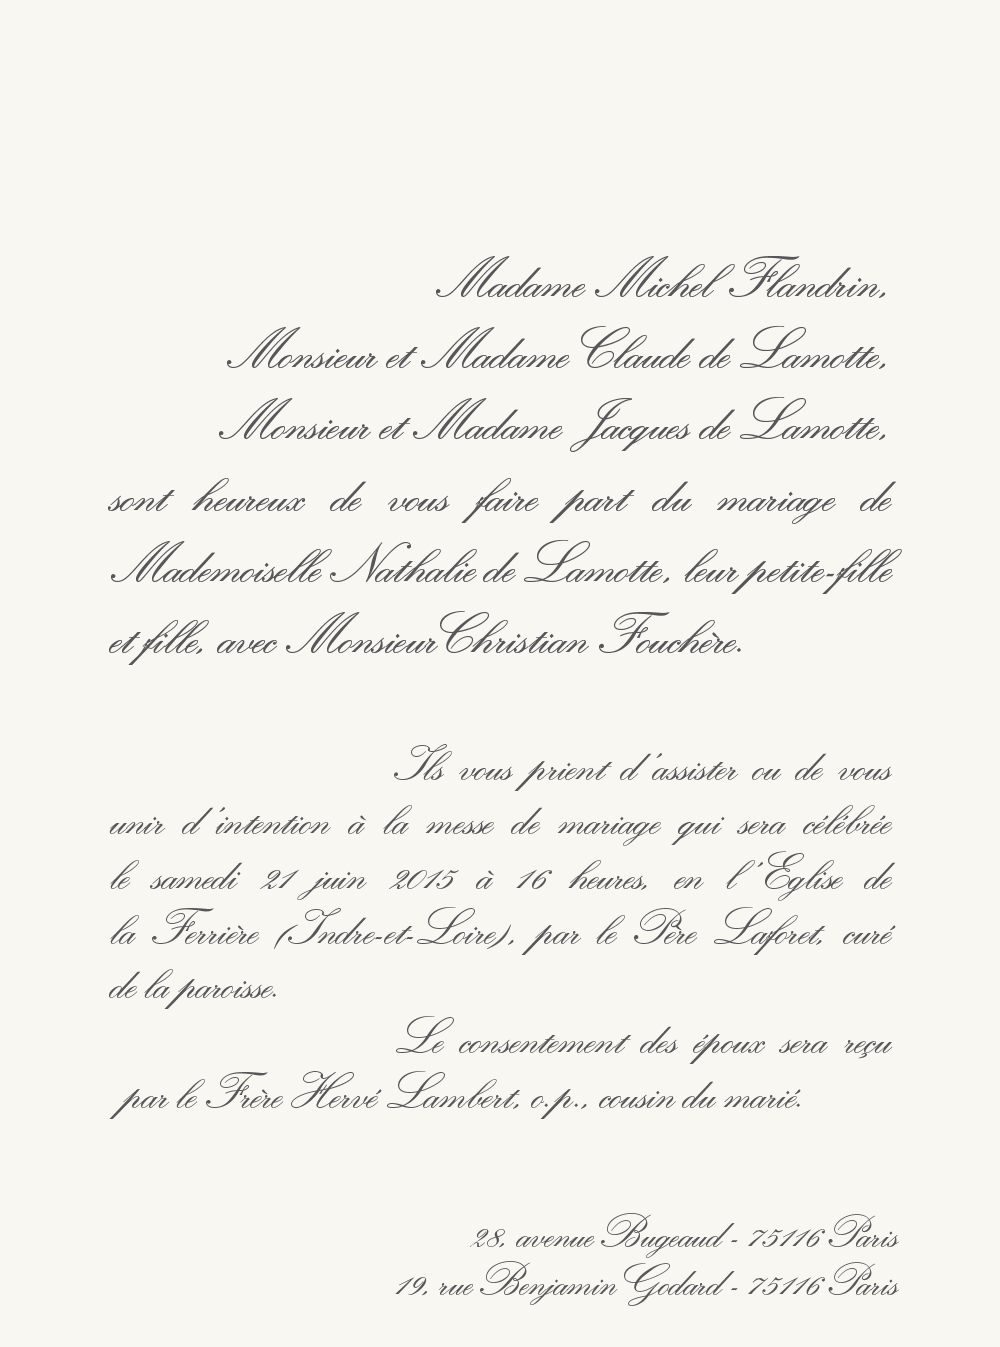 Madame Michel Flandrin,
Monsieur et Madame Claude de Lamotte,
Monsieur et Madame Jacques de Lamotte,
sont heureux de vous faire part du mariage de
Mademoiselle Nathalie de Lamotte, leur petite-fille
et fille, avec Monsieur Christian Fouchère.
Ils vous prient d'assister ou de vous
unir d'intention à la messe de mariage qui sera célébrée
le samedi 21 juin 2015 à 16 heures, en l'Eglise de
la Ferrière (Indre-et-Loire), par le Père Laforet, curé
de la paroisse.
Le consentement des époux sera reçu
par le Frère Hervé Lambert, o.p., cousin du marié.
28, avenue Bugeaud - 75116 Paris
19, rue Benjamin Godard - 75116 Paris